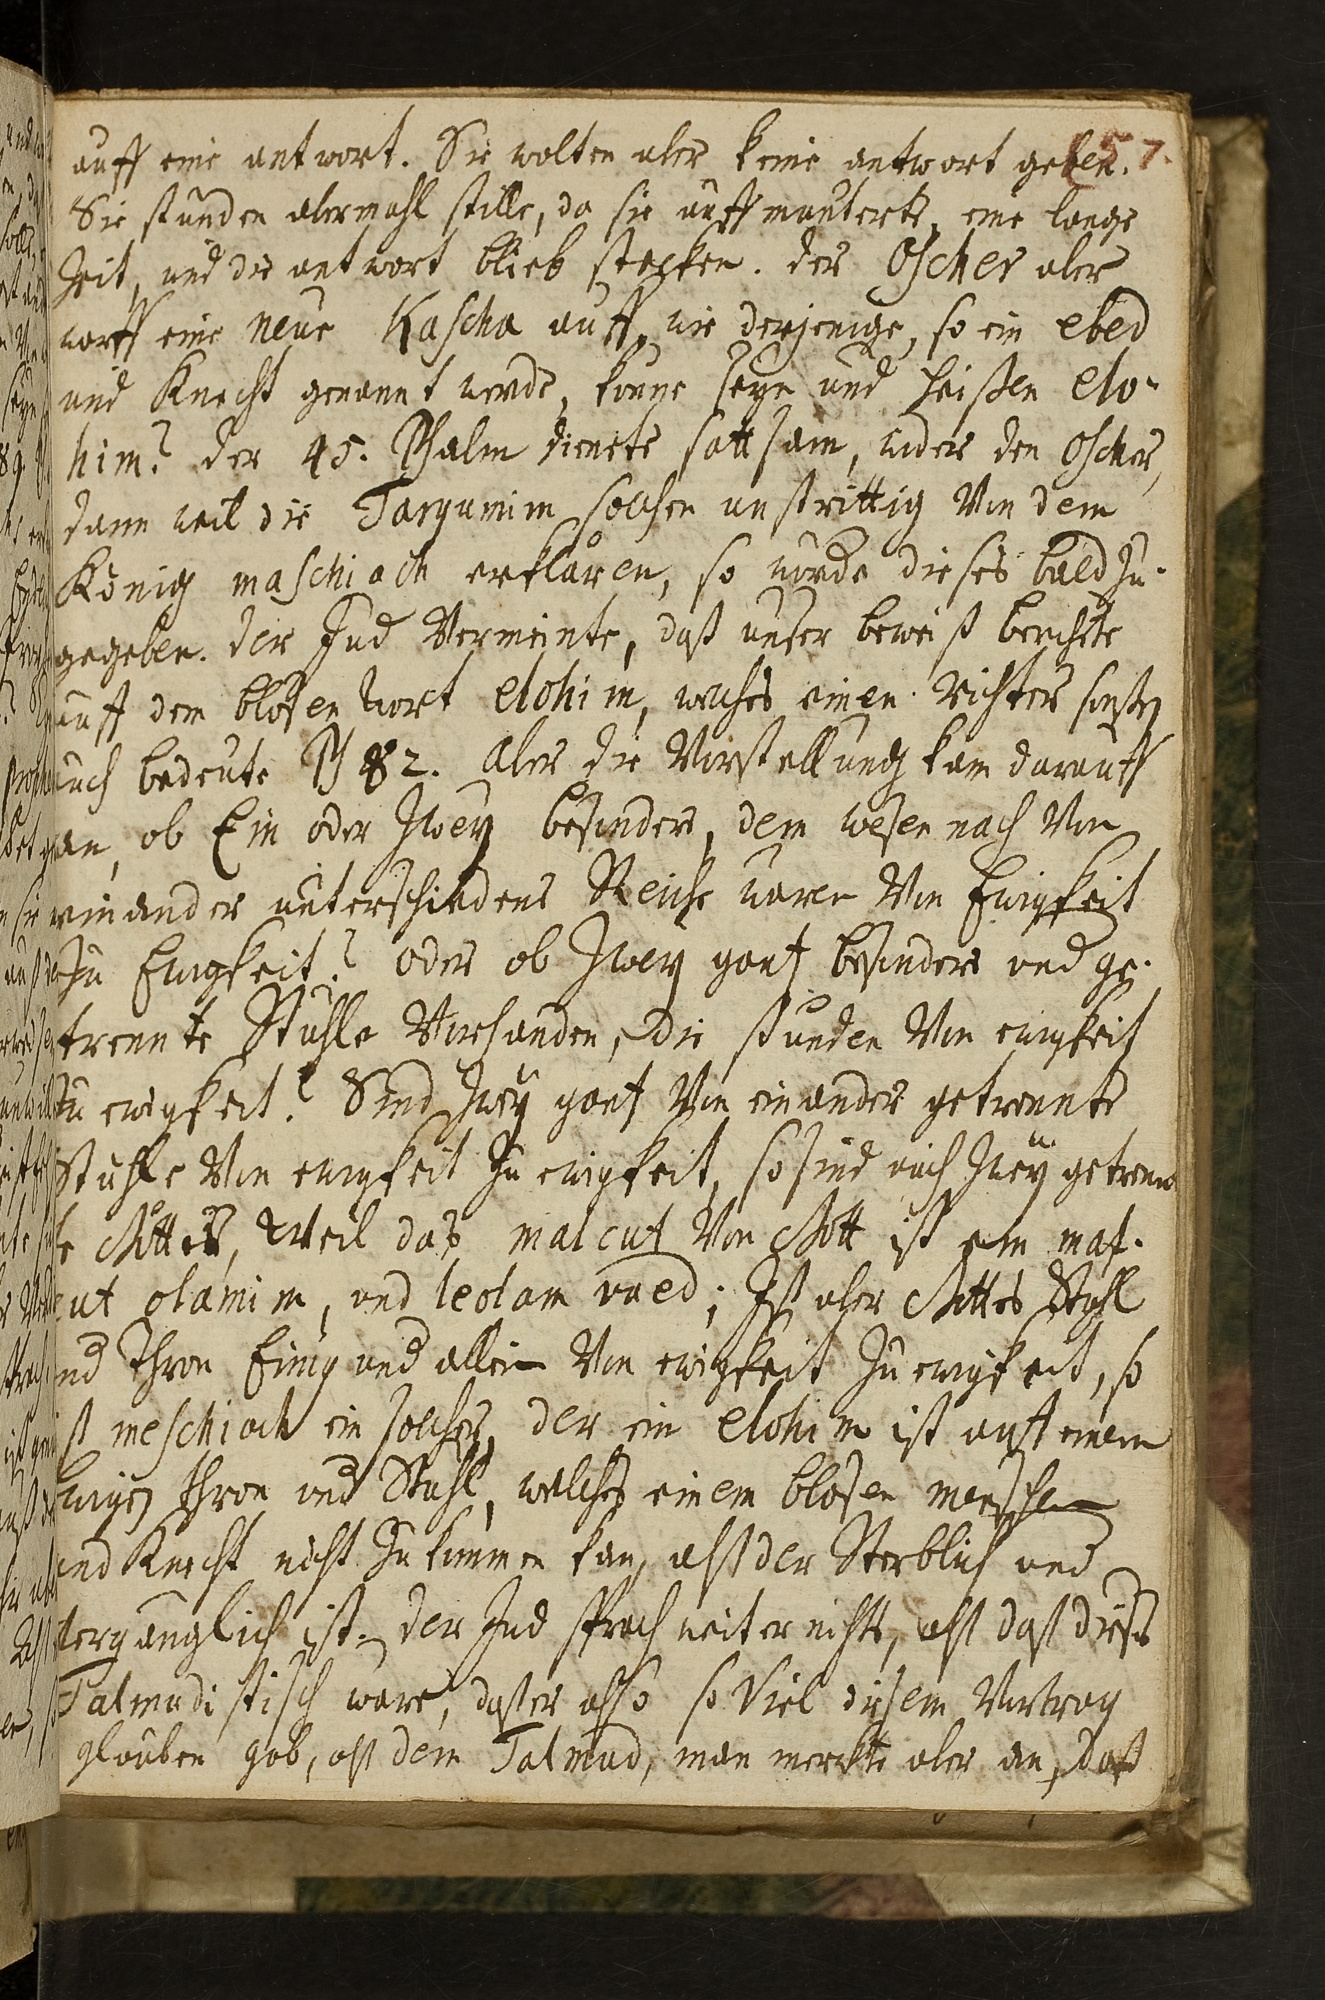 157.
auff eine antwort. Sie wolten aber keine antwort geben.
Sie stunden abermahl stille, da sie auffmunterte, eine lange
Zeit, und die antwort blieb stecken. der Oscher aber
warff eine neue Kascha auff, wie derjenige, so ein ebed
und Knecht genannt werde, könne seyn und heißen elo-
him? der 45. Psalm dienete sattsam, wider den Oscher,
dann weil die Targumim solchen unstrittig Von dem
König maschiach erklären, so wurde dieses bald zu-
gegeben. der Jud Vermeinte, daß unser beweiß beruhete
auff dem blosen wort elohim, welches einen richter sonsten
auch bedeute Ps 82. aber die Vorstellung kam darauff
an, ob Ein oder Zwey besondere, dem wesen nach Von
einander unterschiedene Reiche waren Von Ewigkeit
zu Ewigkeit? oder ob Zwey gantz besondere und ge-
trennte Stühle Vorhanden, die stunden Von ewigkeit
zu ewigkeit? Sind Zwey gantz Von einander getrennte
Stühle Von ewigkeit zu ewigkeit, so sind auch Zwey getrenn
te Götter, Weil das malcut Von Gott ist ein mal-
cut olamim, und leolam vaed; Ist aber Gottes Stuhl
und Thron Einig und allein Von ewigkeit zu ewigkeit, so
ist meschiach ein solcher, der ein elohim ist auff einem
ewigen thron und Stuhl, welches einem blosen menschen
und Knecht nicht zukommen kan, alß der Sterblich und
Vergänglich ist. der Jud sprach weiter nichts, alß daß dieses
Talmudistisch ware, daß er also so Viel diesem Vortrag
glauben gab, alß dem Talmud, man merckte aber an, daß